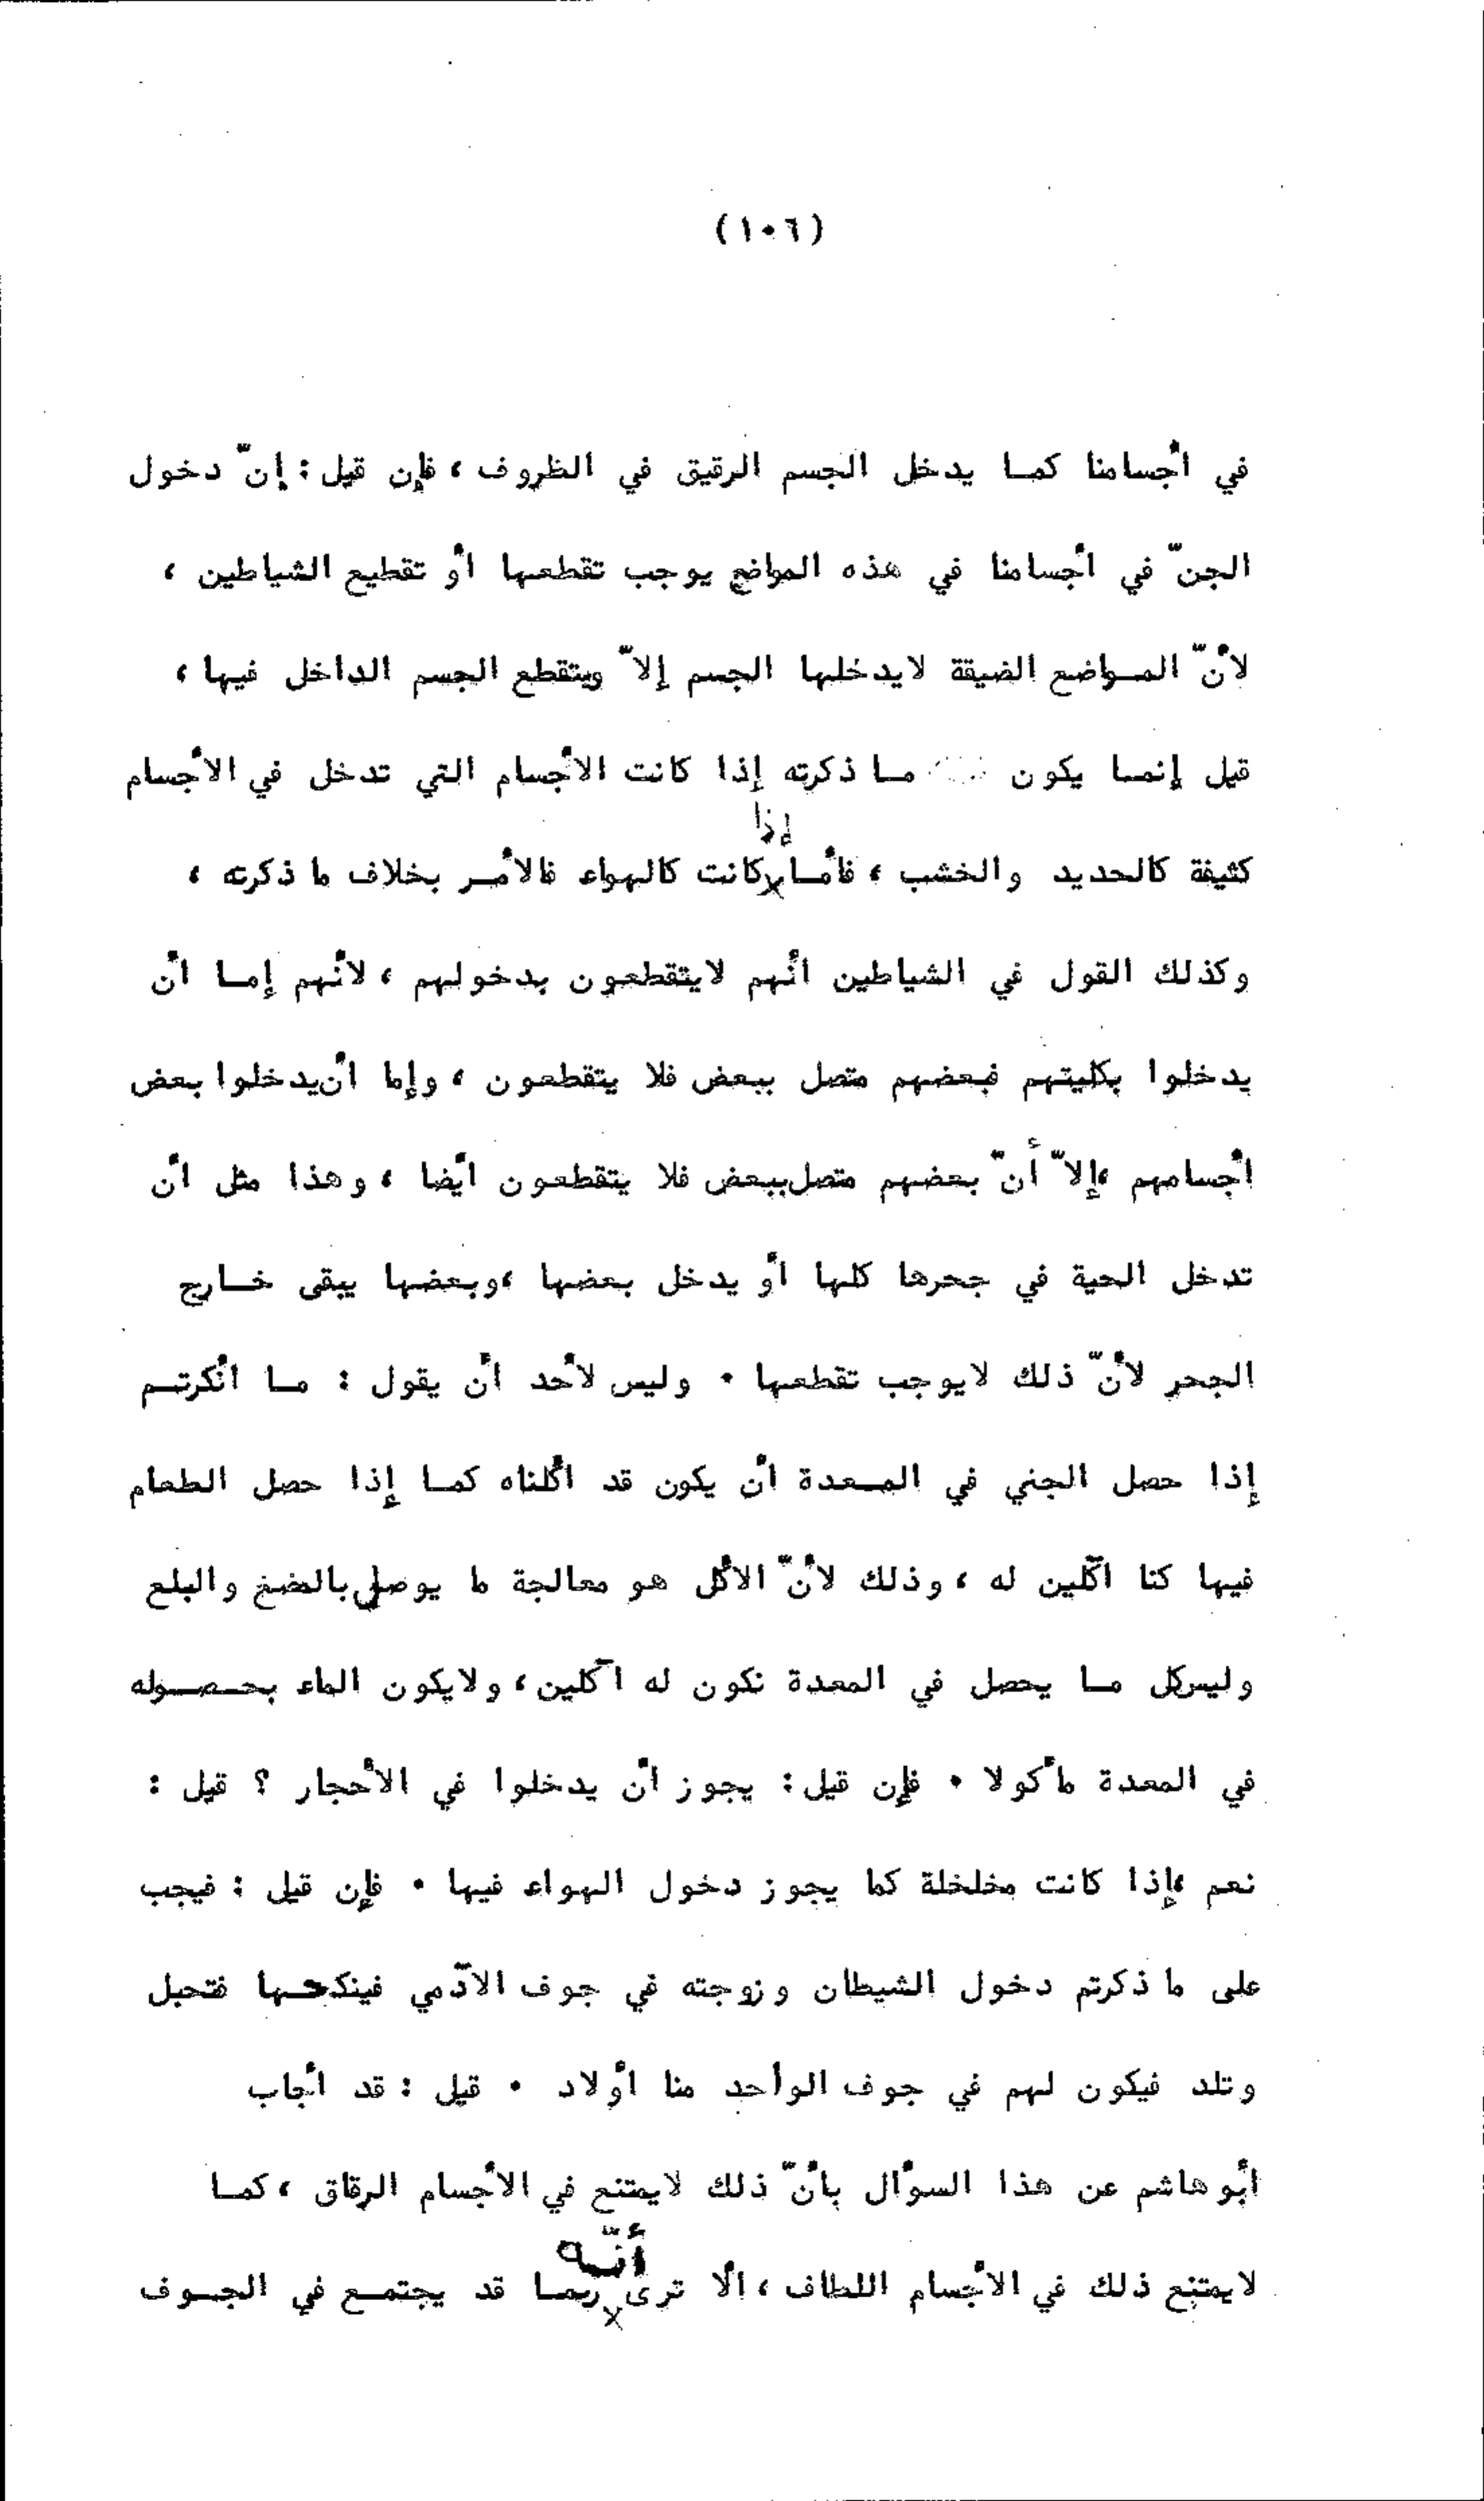 (١٠٦)
في أجسامنا كما يدخل الجسم الرقيق في الظروف ، فإن قيل : إنّ دخول
الجنّ في أجسامنا في هذه المواضع يوجب تقطعها أو تقطيع الشياطين ،
لأنّ المواضع الضيقة لايدخلها الجسم إلاّ ويتقطع الجسم الداخل فيها ،
قيل إنما يكون ما ذكرته إذا كانت الأجسام التي تدخل في الأجسام
كثيفة كالحديد والخشب ، فأما إذا كانت كالهواء فالأمر بخلاف ما ذكرته ،
وكذلك القول في الشياطين أنهم لايتقطعون بدخولهم ، لأنهم إما أن
يدخلوا بكليتهم فبعضهم متصل ببعض فلا يتقطعون ، وإما أن يدخلوا بعض
أجسامهم ،إلاّ أنّ بعضهم متصل ببعض فلا يتقطعون أيضا ، وهذا مثل أن
تدخل الحية في جحرها كلها أو يدخل بعضها ،وبعضها يبقى خارج
الجحر لأنّ ذلك لايوجب تقطعها . وليس لأحد أن يقول : ما أنكرتم
إذا حصل الجني في المعدة أن يكون قد أكلناه كما إذا حصل الطعام
فيها كنا آكلين له ، وذلك لأنّ الأكل هو معالجة ما يوصل بالمضغ والبلع
وليس كل ما يحصل في المعدة نكون له آكلين ، ولايكون الماء بحصوله
في المعدة مأكولا . فإن قيل : يجوز أن يدخلوا في الأحجار ؟ قيل :
نعم ،إذا كانت مخلخلة كما يجوز دخول الهواء فيها . فإن قيل : فيجب
على ما ذكرتم دخول الشيطان وزوجته في جوف الآدمي فينكحها فتحبل
وتلد فيكون لهم في جوف الواحد منا أولاد . قيل : قد أجاب
أبو هاشم عن هذا السؤال بأنّ ذلك لايمتنع في الأجسام الرقاق ، كما
لايمتنع ذلك في الأجسام اللطاف ، ألا ترى أنّه ربما قد يجتمع في الجوف